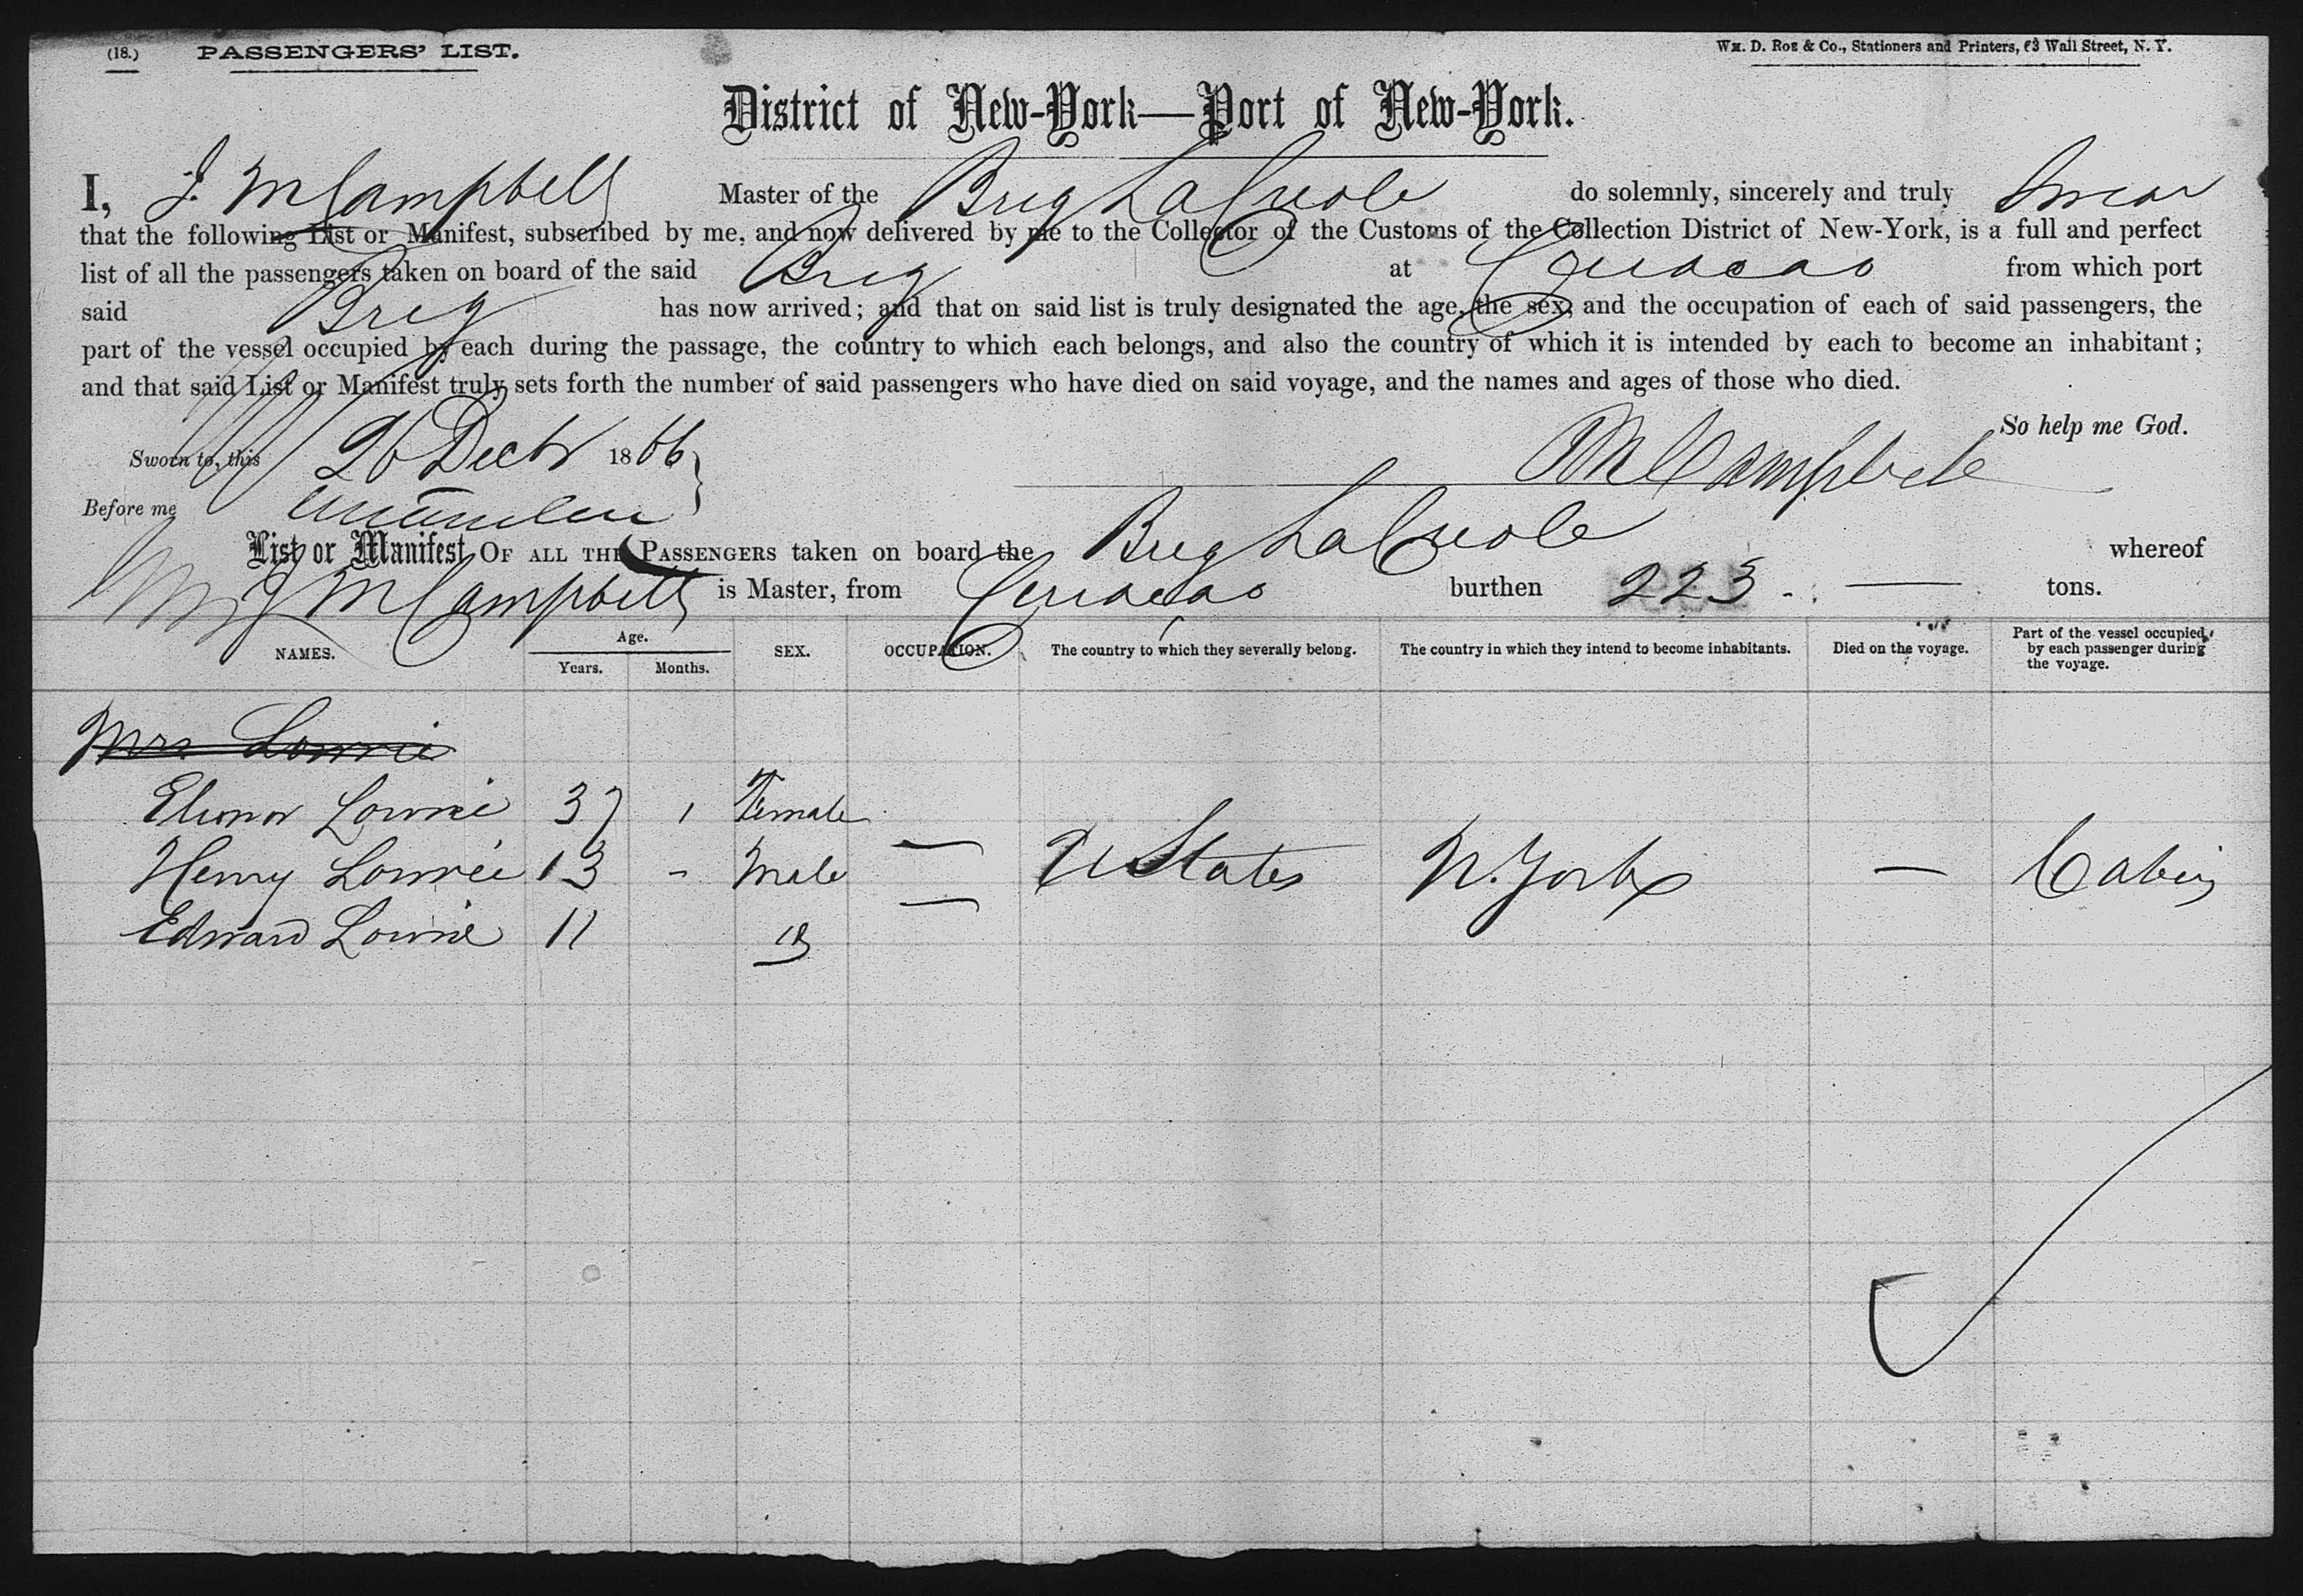 (18.) PASSENGERS' LIST. Wm. D. Roe & Co., Stationers and Printers, 63 Wall Street, N. Y.
District of New-York—Port of New-York.
I, J. M Campbell Master of the Brig La Creole do solemnly, sincerely and truly Swear
that the following List or Manifest, subscribed by me, and now delivered by me to the Collector of the Customs of the Collection District of New-York, is a full and perfect
list of all the passengers taken on board of the said Brig at Curacao from which port
said Brig has now arrived; and that on said list is truly designated the age, the sex, and the occupation of each of said passengers, the
part of the vessel occupied by each during the passage, the country to which each belongs, and also the country of which it is intended by each to become an inhabitant;
and that said List or Manifest truly sets forth the number of said passengers who have died on said voyage, and the names and ages of those who died.
So help me God.
Sworn to, this 26 Decbr 1866 JM Campbell
Before me
List or Manifest OF ALL THE PASSENGERS taken on board the Brig La Creole whereof
J M Campbell is Master, from Curacao burthen 223 tons.
NAMES. Age. Years. Months. SEX. OCCUPATION. The country to which they severally belong. The country in which they intend to become inhabitants. Died on the voyage. Part of the vessel occupied by each passenger during the voyage.
Mrs. Lowrie
Elionor Lowrie 37 1 Female —
Henry Lowrie 13 - Male — U States N. York — Cabin
Edward Lowrie 11